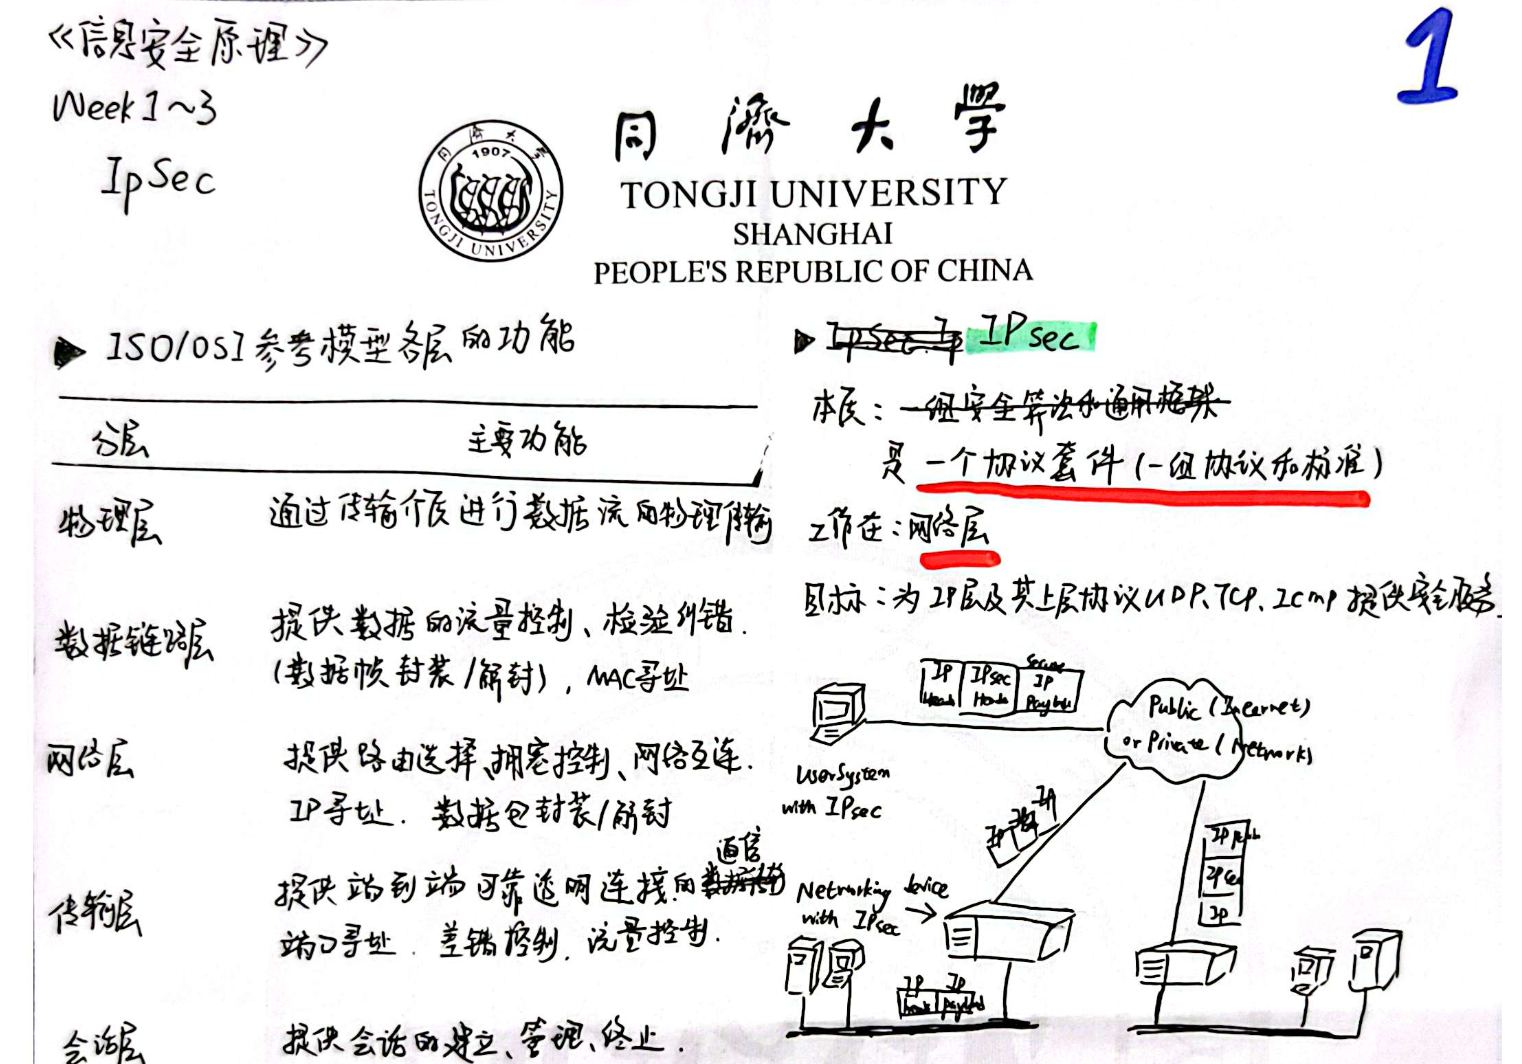 《信息安全原理》
Week 1~3
IpSec
1
同濟大学
1907
同濟大学
TONGJI UNIVERSITY
TONGJI UNIVERSITY
SHANGHAI
PEOPLE'S REPUBLIC OF CHINA
▶ ISO/OSI 参考模型各层的功能
分层 主要功能
物理层 通过传输介质进行数据流的物理传输
数据链路层 提供数据的流量控制、检验纠错.
(数据帧封装/解封), MAC寻址
网络层 提供路由选择、拥塞控制、网络互连.
IP寻址. 数据包封装/解封
传输层 提供端到端可靠透明连接的通信
端口寻址. 差错控制. 流量控制.
会话层 提供会话的建立、管理、终止.
▶ IpSec Ip IPsec
本质: 一组安全算法和通用框架
是一个协议套件(一组协议和标准)
工作在: 网络层
目标: 为IP层及其上层协议UDP、TCP、Icmp提供安全服务.
IP IPsec Secure IP
Public (Internet)
or Private (Network)
User System
with IPsec
Networking device
with IPsec
IP
IP
IP
IP
IP